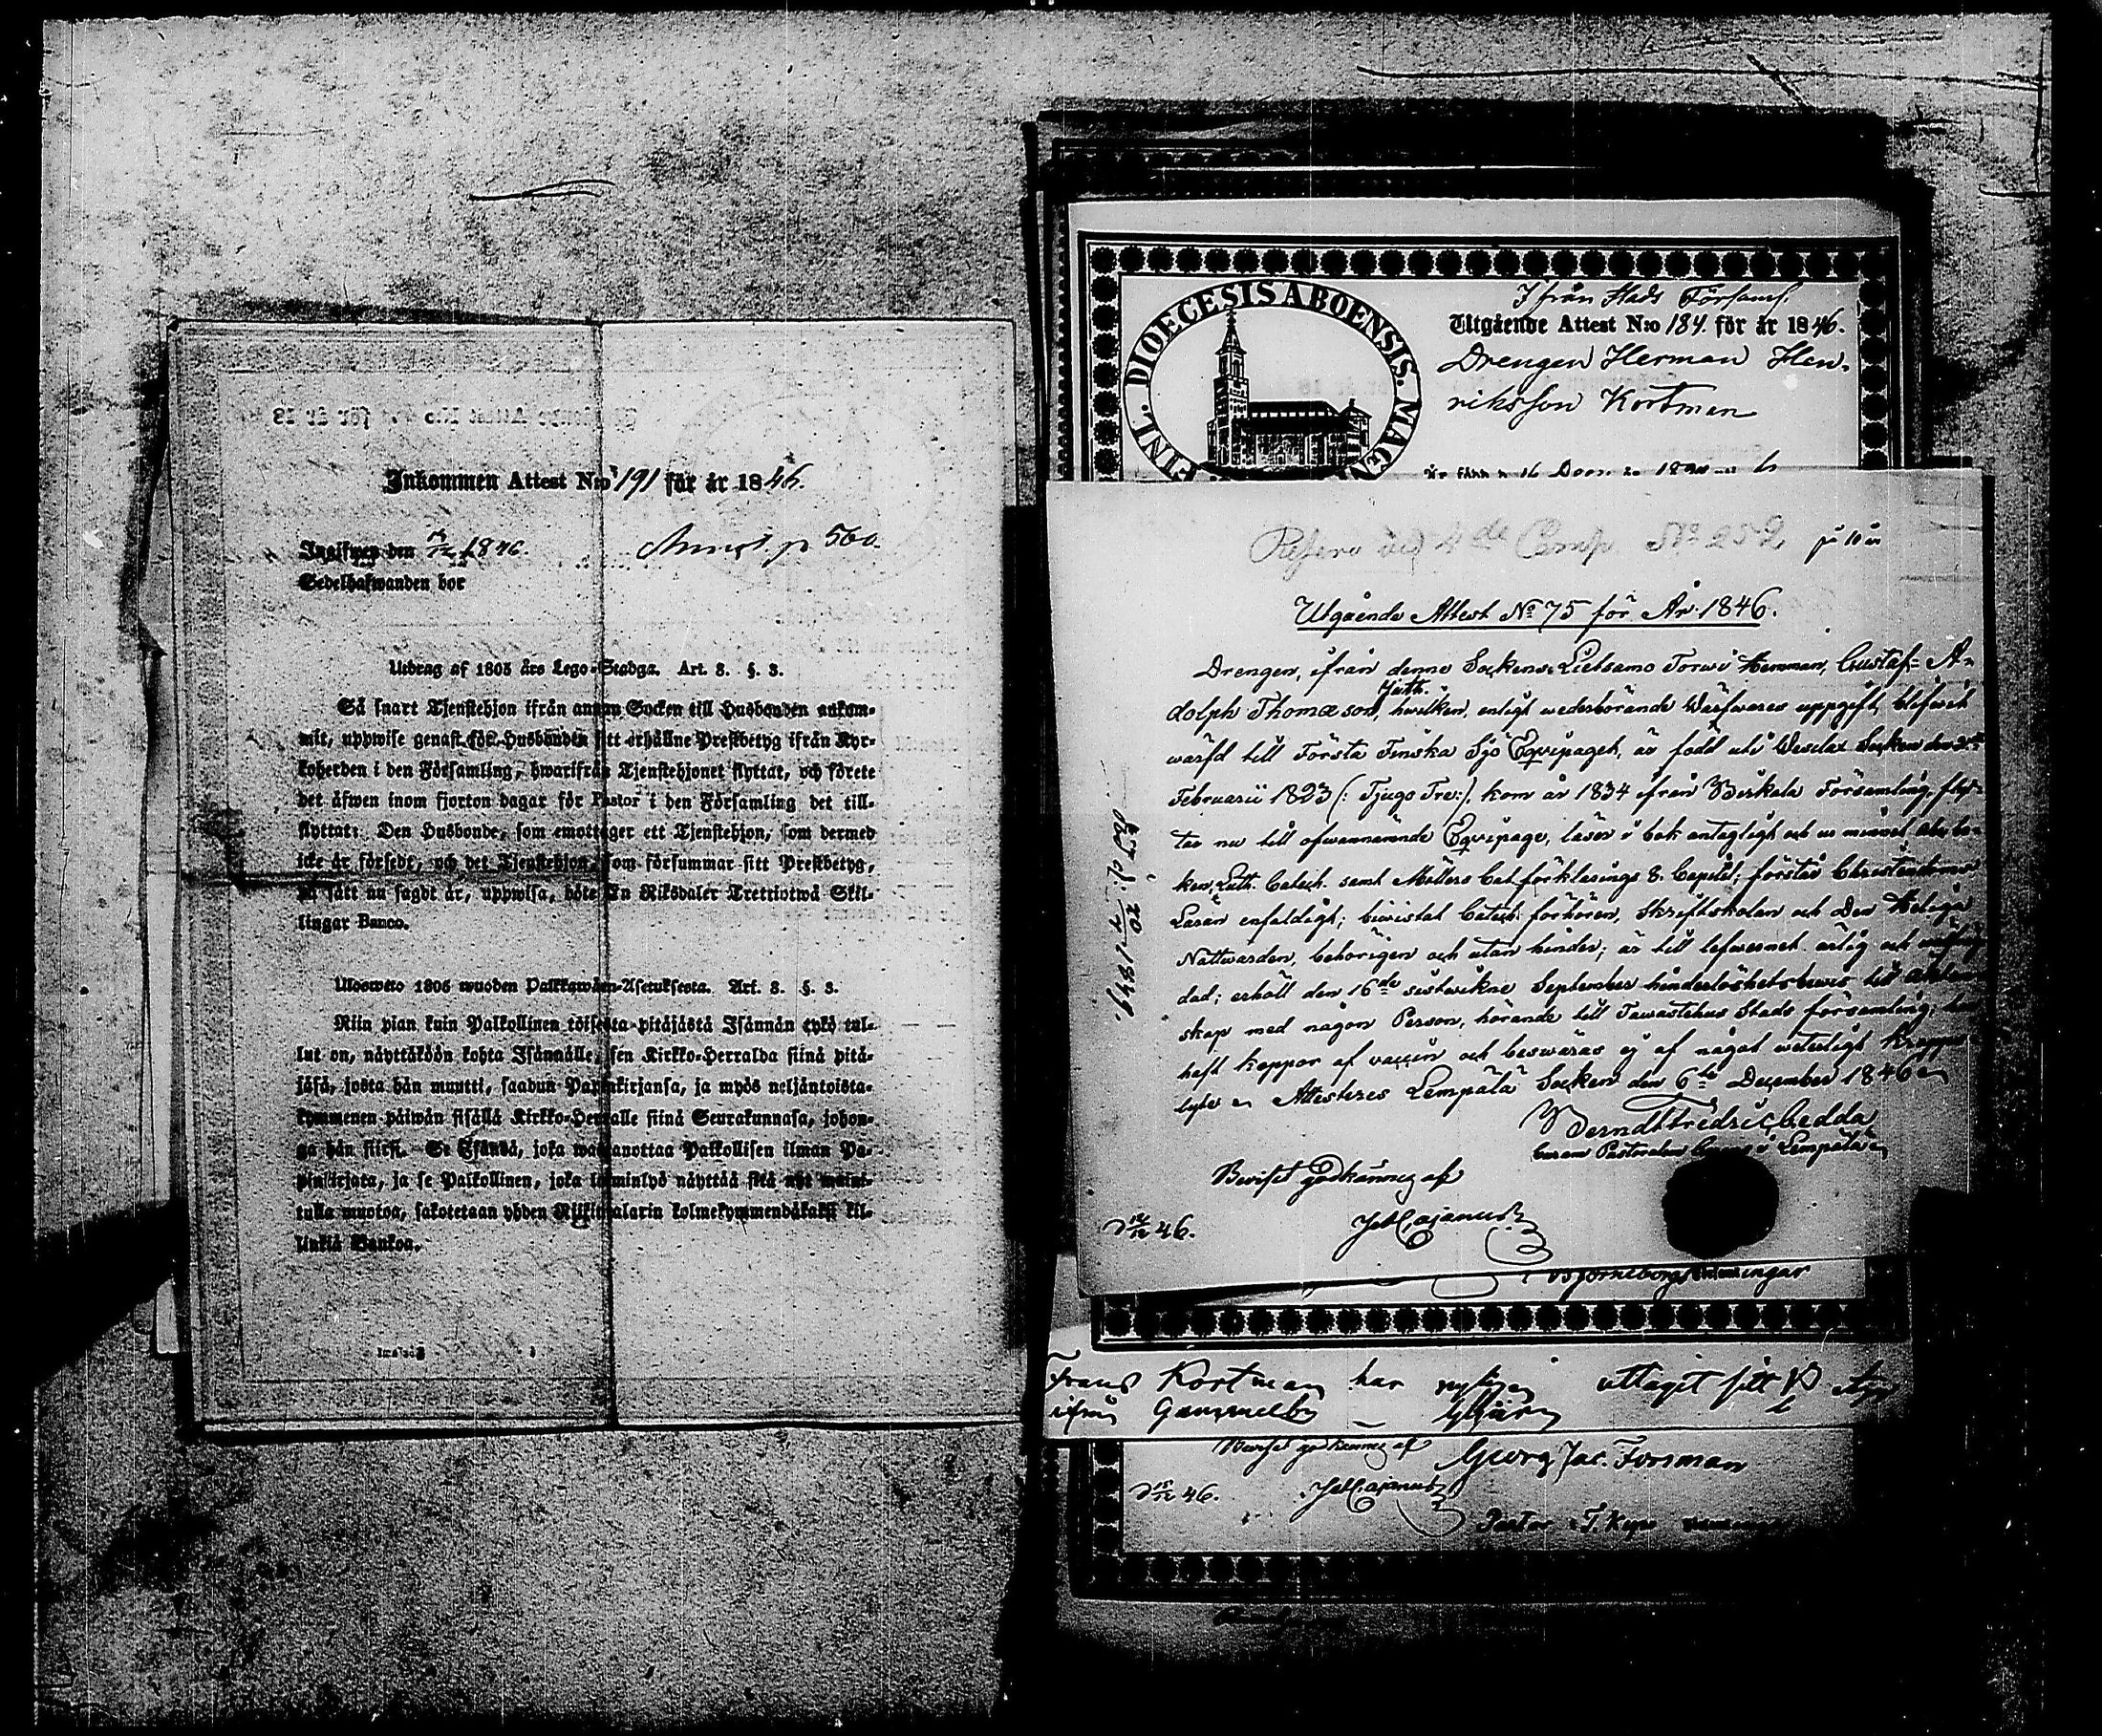 Inkommen Attest N:o 191 för år 1846.
Ingifwen den 1846. p 560.
Sedelhafwanden bor
Utdrag af 1805 års Lego-Stadga. Art. 3. §. 3.
Så snart Tjenstehjon ifrån annan Socken till Husbonden ankom-
mit, uppwise genast för Husbonden sitt erhållne Prestbetyg ifrån Kyr-
koherden i den Församling, hwarifrån Tjenstehjonet flyttat, och förete
det äfwen inom fjorton dagar för Pastor i den Församling det till-
flyttat: Den Husbonde, som emottager ett Tjenstehjon, som dermed
icke är försedt, och det Tjenstehjon, som försummar sitt Prestbetyg,
på sätt nu sagdt är, uppwisa, böte En Riksdaler Trettiotwå Skil-
lingar Banco.
Ulosweto 1805 wuoden Palkkawäen-Asetuksesta. Art. 3. §. 3.
Niin pian kuin Palkollinen toisesta pitäjästä Isännän tykö tul-
lut on, näyttäköön kohta Isännälle, sen Kirkko-Herralda siinä pitä-
jäsä, josta hän muutti, saadun Papinkirjansa, ja myös neljäntoista-
kymmenen päiwän sisällä Kirkko-Herralle siinä Seurakunnasa, johon-
ga hän siirsi. Se Isändä, joka wastanottaa Palkollisen ilman Pa-
pinkirjata, ja se Palkollinen, joka laiminlyö näyttää sitä nyt maini-
tulla muotoa, sakotetaan yhden Riikintalarin kolmekymmendäkaksi kil-
linkiä Bankoa.
FINL. DIOECESIS ABOENSIS. MAGN
Ifrån Stads Församl.
Utgående Attest N:o 184. för år 1846.
Drengen Herman Hen-
riksson Kortman
4de Comp. No 252
Utgående Attest No 75 för År 1846.
Drengen, ifrån denne Sockens Lietsamo Torwi Hemman, Gustaf A-
dolph Thomæson, hwilken, enligt wederbörande Wärfwares uppgift, blifwit
wärfd till Första Finska Sjö Eqvipaget, är född uti Wesilax Socken den
Februarii 1823 (: Tjugo Tre:), kom år 1834 ifrån Birkala Församling, flyt-
tar nu till ofwannämnde Eqvipage, läser i bok antagligt och ur minnet Abc bo-
ken, Luth. Catech. samt Möllers Cat. förklarings 8. Capitel; förstår Christendoms
Läran enfaldigt; biwistat Catech. förhören, Skriftskolan och Den Heliga
Nattwarden, behörigen och utan hinder; är till lefwernet ärlig och
dad; erhöll den 16de sistwikne September hinderlöshetsbewis till äkten-
skap med någon Person, hörande till Tawastehus Stads församling;
haft koppor af vaccin och beswäras ej af något weterligt kropps-
lyte. Attesteres Lempälä Socken den 6te December 1846
Berndt Fredric Cedda
Lempälä
Beviset godkännes af
46.
Björneborgs
Frans Kortman har uttagit sitt
ifrån Gammelby
Beviset godkännes af Georg Jac. Forsman
46.
Pastor